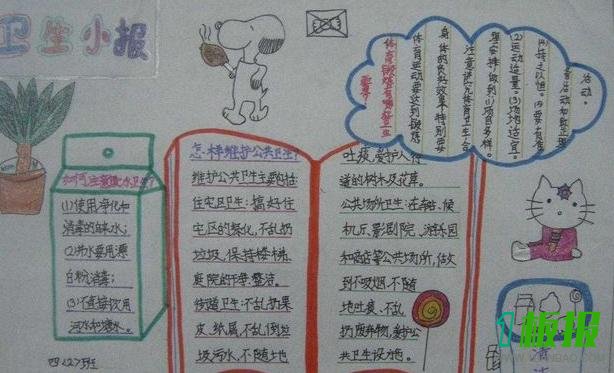 卫生小报
如何注意饮水卫生?
(1)使用净化和
消毒的自来水;
(2)井水要用漂
白粉消毒;
(3)不直接饮用
河水和塘水。
四(2)班
怎样维护公共卫生?
维护公共卫生主要包括:
住宅区卫生:搞好住
宅区的绿化,不乱扔
垃圾,保持楼梯、
庭院的干净、整洁。
街道卫生:不乱扔果
皮、纸屑,不乱倒垃
圾污水,不随地
吐痰,爱护人行
道的树木及花草。
公共场所卫生:在车站、候
机厅、影剧院、游乐园
和商店等公共场所,做
到不吸烟,不随
地吐痰、不乱
扔废弃物,爱护公
共卫生设施。
体育锻炼有哪些卫生
要求?
体育运动要达到锻炼
身体的良好效果,特别要
注意讲究体育卫生,合
理安排,做到:(1)项目多样。
(2)运动适量。(3)场地适宜。
(4)持之以恒。(5)要有准
备活动和整理
活动。
板报